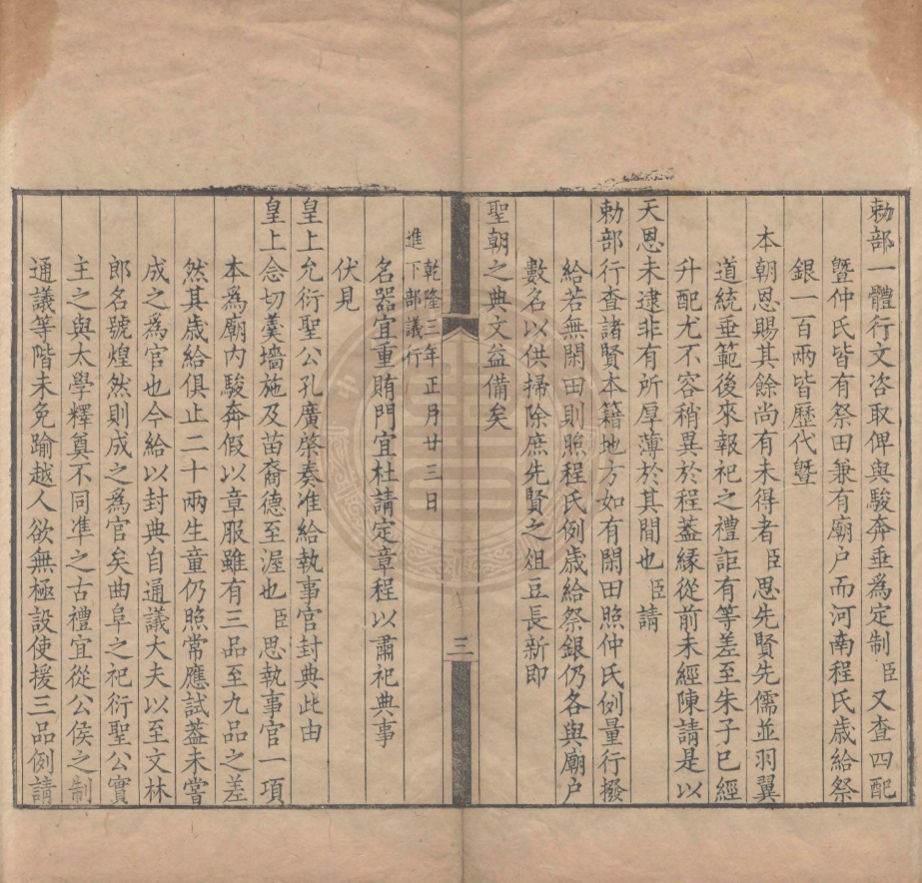 勅部一體行文咨取俾與駿奔垂爲定制臣又查四配
曁仲氏皆有祭田兼有廟户而河南程氏歲給祭
銀一百兩皆歷代曁
本朝恩賜其餘尚有未得者臣思先賢先儒並羽翼
道統垂範後來報祀之禮詎有等差至朱子已經
升配尤不容稍異於程葢緣從前未經陳請是以
天恩未逮非有所厚薄於其間也臣請
勅部行查諸賢本籍地方如有閑田照仲氏例量行撥
給若無閑田則照程氏例歲給祭銀仍各與廟户
數名以供掃除庶先賢之俎豆長新即
聖朝之典文益備矣
三
乾隆三年正月廿三日
進下部議行
名器宜重賄門宜杜請定章程以肅祀典事
伏見
皇上允衍聖公孔廣棨奏准給執事官封典此由
皇上念切羹墻施及苗裔德至渥也臣思執事官一項
本爲廟内駿奔假以章服雖有三品至九品之差
然其歲給俱止二十兩生童仍照常應試葢未嘗
成之爲官也今給以封典自通議大夫以至文林
郎名號煌然則成之爲官矣曲阜之祀衍聖公實
主之與太學釋奠不同準之古禮宜從公侯之制
通議等階未免踰越人欲無極設使援三品例請